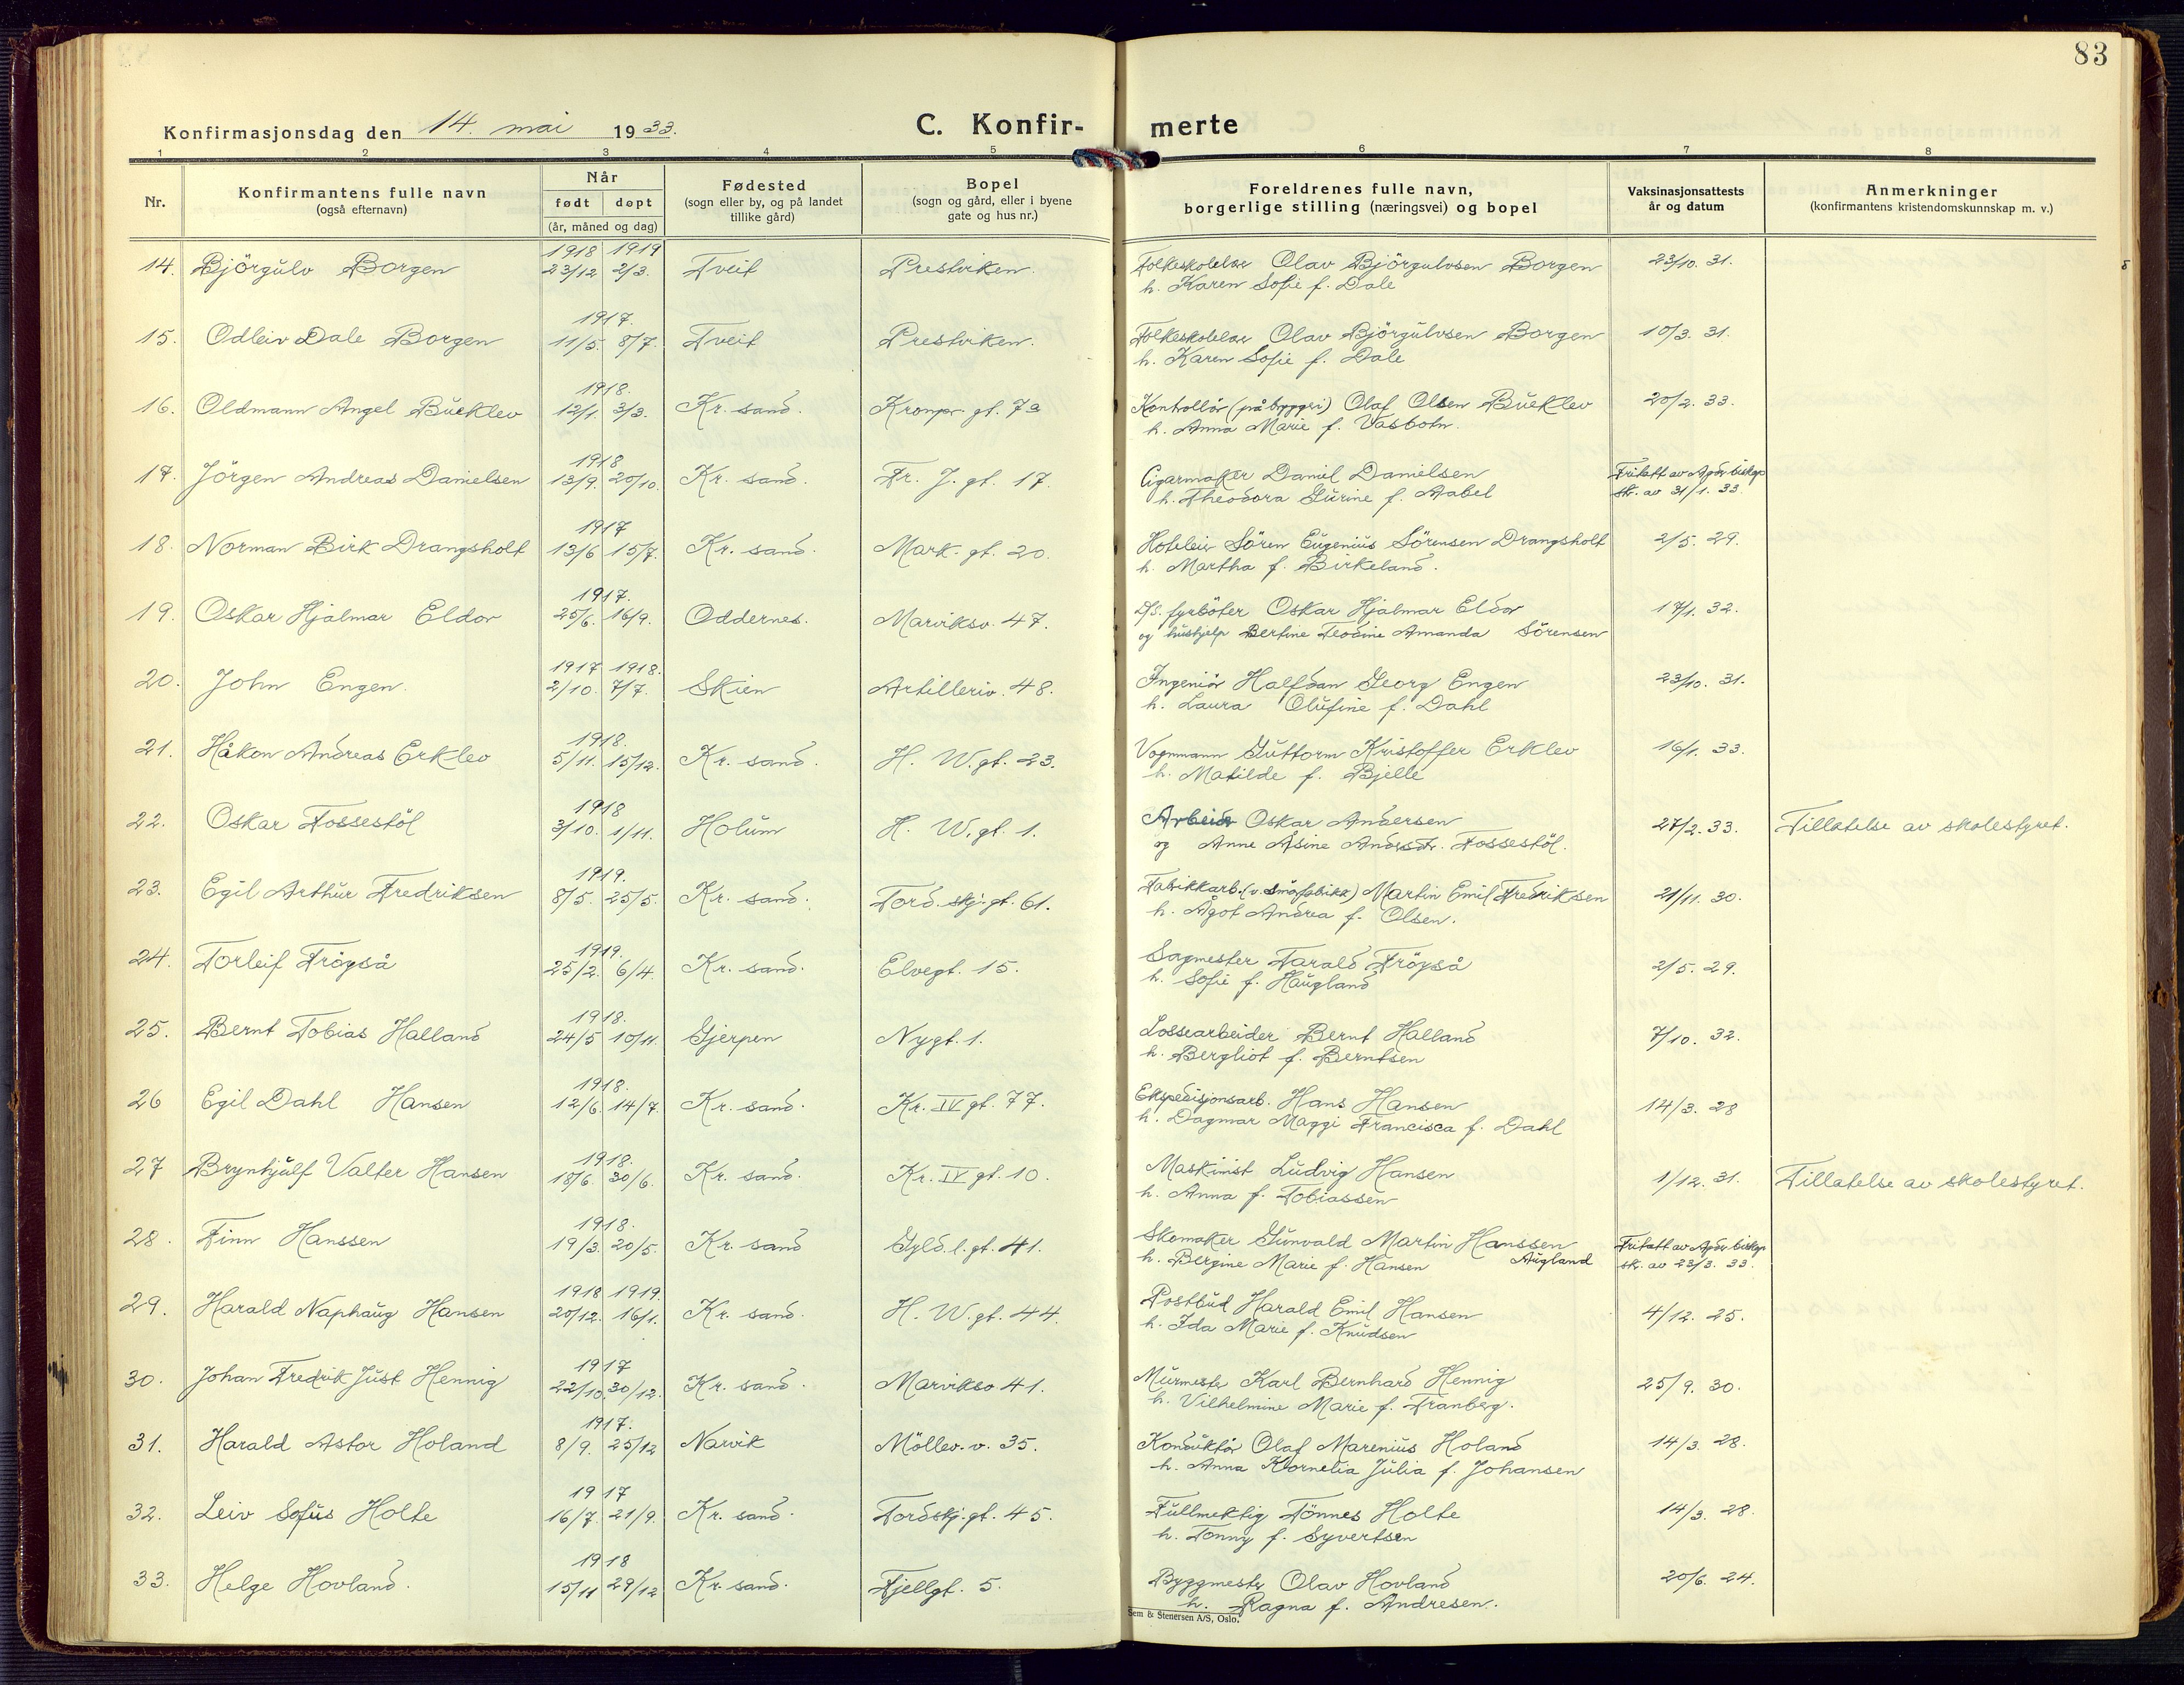 83
Konfirmasjonsdag den 14. mai 1933.
C. Konfir- merte
1 2 3 4 5 6 7 8
Nr.
Konfirmantens fulle navn
(også efternavn)
Når
født døpt
(år, måned og dag)
Fødested
(sogn eller by, og på landet
tillike gård)
Bopel
(sogn og gård, eller i byene
gate og hus nr.)
Foreldrenes fulle navn,
borgerlige stilling (næringsvei) og bopel
Vaksinasjonsattests
år og datum
Anmerkninger
(konfirmantens kristendomskunnskap m. v.)
1918 1919
14. Björgulv Borgen 23/12 2/3. Tveit Prestviken. Folkeskolelær Olav Björgulvsen Borgen 23/10. 31.
h. Karen Sofie f. Dale
1917.
15. Odleiv Dale Borgen 11/5. 8/7. Tveit Prestviken. Folkeskolelær Olav Björgulvsen Borgen 10/3. 31.
h. Karen Sofie f. Dale
1918.
16. Oldmann Angel Bueklev 12/1. 3/3. Kr. sand. Kronpr. gt. 73 Kontrollör (på bryggeri) Olaf Olsen Bueklev 20/2. 33.
h. Anna Marie f. Vasbotn.
1918
17. Jörgen Andreas Danielsen 13/9. 20/10. Kr. sand. Fr. J. gt. 17. Cigarmaker Daniel Danielsen Fritatt av Agder biskop
h. Theodora Gurine f. Aabel skr. av 31/1. 33.
1917
18. Norman Birk Drangsholt 13/6 15/7. Kr. sand. Mark. gt. 20. Hoteleier Sören Eugenius Sörensen Drangsholt 2/5. 29.
h. Martha f. Birkeland.
1917.
19. Oskar Hjalmar Eldor 25/6. 16/9. Oddernes. Marviksv. 47. D/S. fyrböter Oskar Hjalmar Eldor 17/1. 32.
og hushjelp Bertine Teodine Amanda Sörensen
1917 1918.
20. John Engen. 2/10. 7/7. Skien Artilleriv. 48. Ingeniör Halfdan Georg Engen 23/10. 31.
h. Laura Olufine f. Dahl
1918.
21. Håkon Andreas Erklev 5/11. 15/12. Kr. sand. H. W. gt. 23. Vognmann Guttorm Kristoffer Erklev 16/1. 33.
h. Matilde f. Bjelle
1918
22. Oskar Fossestöl 3/10. 1/11. Holum H. W. gt. 1. Arbeider Oskar Andersen 27/2. 33. Tillatelse av skolestyret.
og Anne Asine Andersdtr. Fossestöl.
1919.
23. Egil Arthur Fredriksen 8/5. 25/5. Kr. sand. Tord. skj. gt. 61. Fabrikkarb. (v. snörfabrikk) Martin Emil Fredriksen 21/11. 30.
h. Ågot Andrea f. Olsen.
1919.
24. Torleif Fröyså 25/2. 6/4. Kr. sand. Elvegt. 15. Sagmester Tarald Fröyså 2/5. 29.
h. Sofie f. Haugland
1918.
25. Bernt Tobias Halland 24/5 10/11. Gjerpen Nygt. 1. Lossearbeider Bernt Halland 7/10. 32.
h. Bergliot f. Berntsen
1918.
26 Egil Dahl Hansen 12/6. 14/7. Kr. sand. Kr. IV gt. 77. Ekspedisjonsarb. Hans Hansen 14/3. 28
h. Dagmar Maggi Francisca f. Dahl
1918.
27 Brynhjulf Valter Hansen 18/6. 30/6. Kr. sand. Kr. IV gt. 10. Maskinist Ludvig Hansen 1/12. 31. Tillatelse av skolestyret.
h. Anna f. Tobiassen
1918.
28. Finn Hanssen 19/3. 20/5. Kr. sand Gyld. l. gt. 41. Skomaker Gunvald Martin Hanssen Fritatt av Agder biskop
h. Bergine Marie f. Hansen Augland skr. av 23/3. 33.
1918 1919.
29. Harald Naphaug Hansen 20/12. 16/1. Kr. sand. H. W. gt. 44. Postbud Harald Emil Hansen 4/12. 25.
h. Ida Marie f. Knudsen
1917
30. Johan Fredrik Just Hennig 22/10. 30/12. Kr. sand. Marviksv 41. Murmester Karl Bernhard Hennig 25/9. 30.
h. Vilhelmine Marie f. Tranberg.
1917.
31. Harald Astor Holand 8/9. 25/12 Narvik Möllev. v. 35. Konduktör Olaf Marenius Holand 14/3. 28.
h. Anna Kornelia Julia f. Johansen
1917
32. Leiv Sofus Holte 16/7. 21/9. Kr. sand. Tordskj. gt. 45. Fullmektig Tönnes Holte 14/3. 28.
h. Tonny f. Syvertsen
1918
33. Helge Hovland. 15/11 29/12 Kr. sand. Fjellgt. 5. Byggmester Olav Hovland 20/6. 24.
h. Ragna f. Andresen.
Sem & Stenersen A/S, Oslo.